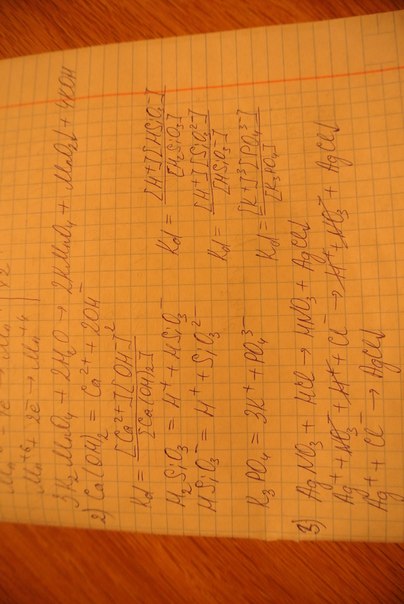 Mn⁺⁶ + 2e → Mn⁺⁴
3K₂MnO₄ + 2H₂O → 2KMnO₄ + MnO₂↓ + 4KOH
2) Ca(OH)₂ = Ca²⁺ + 2OH⁻
Kd = [Ca²⁺][OH⁻]² / [Ca(OH)₂]
H₂SiO₃ = H⁺ + HSiO₃⁻ Kd = [H⁺][HSiO₃⁻] / [H₂SiO₃]
HSiO₃⁻ = H⁺ + SiO₃²⁻ Kd = [H⁺][SiO₃²⁻] / [HSiO₃⁻]
K₃PO₄ = 3K⁺ + PO₄³⁻ Kd = [K⁺]³[PO₄³⁻] / [K₃PO₄]
3) AgNO₃ + HCl → HNO₃ + AgCl↓
Ag⁺ + NO₃⁻ + H⁺ + Cl⁻ → H⁺ + NO₃⁻ + AgCl↓
Ag⁺ + Cl⁻ → AgCl↓